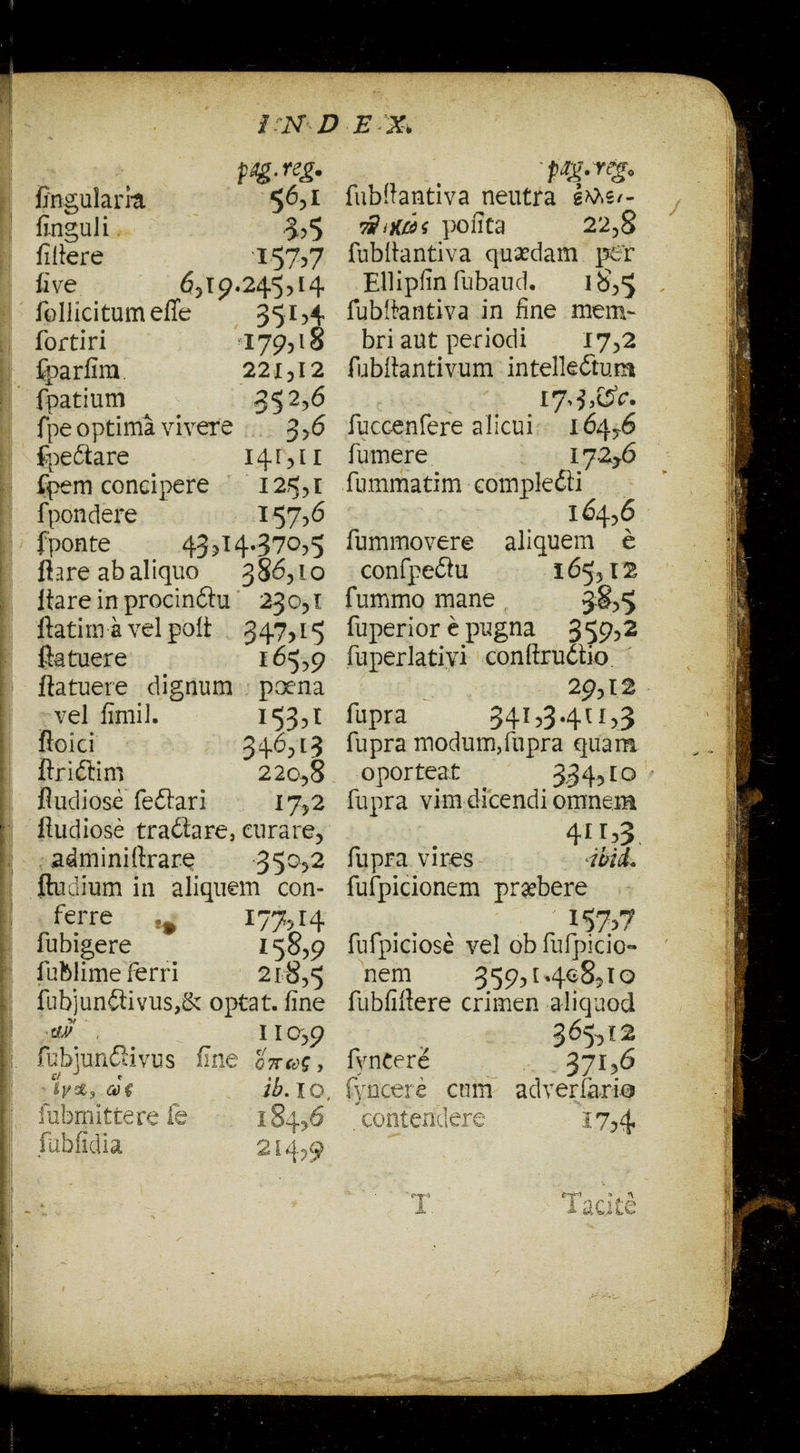 INDEX.
pag.reg.
ſingularia 56,1
ſinguli 3,5
ſiſtere 157,7
ſive 6,19.245,14
ſollicitum eſſe 351,4
ſortiri 179,18
ſparſim 221,12
ſpatium 352,6
ſpe optimâ vivere 3,6
ſpectare 141,11
ſpem concipere 125,1
ſpondere 157,6
ſponte 43,14.370,5
ſtare ab aliquo 386,10
ſtare in procinctu 230,1
ſtatim à vel poſt 347,15
ſtatuere 165,9
ſtatuere dignum pœna
vel ſimil. 153,1
ſtoici 346,13
ſtrictim 220,8
ſtudiosè ſectari 17,2
ſtudiosè tractare, curare,
adminiſtrare 350,2
ſtudium in aliquem con-
ferre 177,14
ſubigere 158,9
ſublime ferri 218,5
ſubjunctivus,& optat. ſine
ἂν 110,9
ſubjunctivus ſine ὅπως,
ἵνα, ὡς ib.10.
ſubmittere ſe 184,6
ſubſidia 214,9
pag.reg.
ſubſtantiva neutra ἐλλει-
πτικῶς poſita 22,8
ſubſtantiva quædam per
Ellipſin ſubaud. 18,5
ſubſtantiva in fine mem-
bri aut periodi 17,2
ſubſtantivum intellectum
17,3,&c.
ſuccenſere alicui 164,6
ſumere 172,6
ſummatim complecti
164,6
ſummovere aliquem è
conſpectu 165,12
ſummo mane 38,5
ſuperior è pugna 359,2
ſuperlativi conſtructio
29,12
ſupra 341,3.411,3
ſupra modum,ſupra quam
oporteat 334,10
ſupra vim dicendi omnem
411,3
ſupra vires ibid.
ſuſpicionem præbere
157,7
ſuſpiciosè vel ob ſuſpicio-
nem 359,1.408,10
ſubſiſtere crimen aliquod
365,12
ſynceré 371,6
ſyncerè cum adverſario
contendere 17,4
T Tacitè